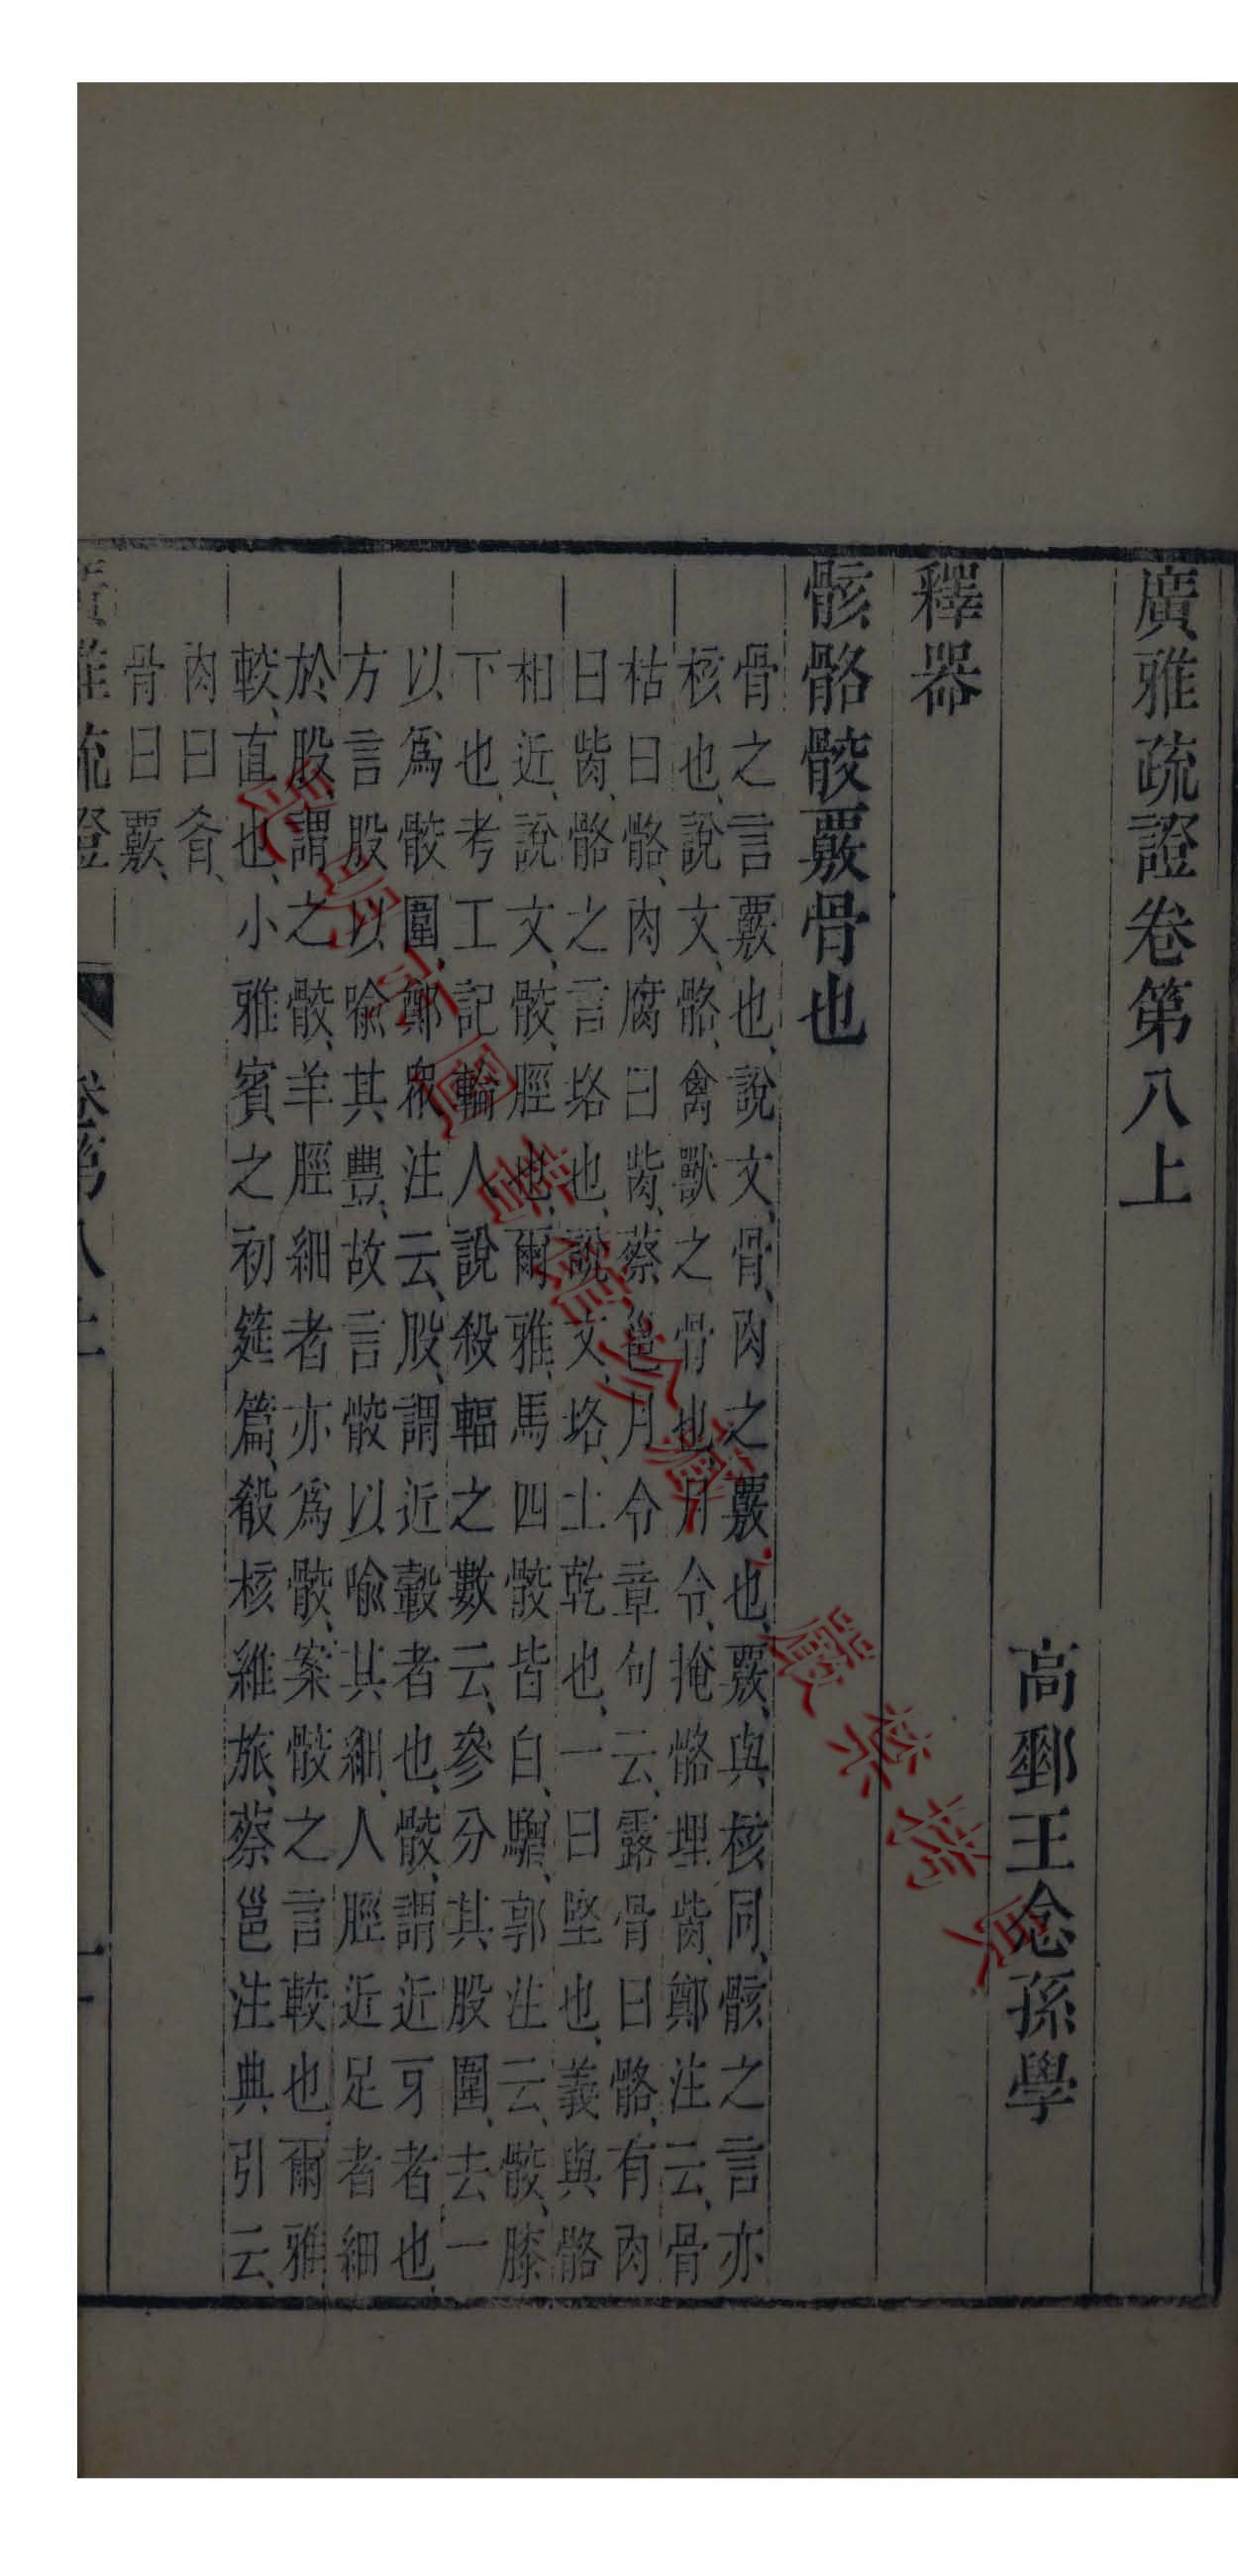 廣雅疏證卷第八上
高郵王念孫學
釋器
骸骼骹覈骨也
骨之言覈也、說文、骨、肉之覈也、覈、與核同、骸之言亦
核也、說文、骼、禽獸之骨也、月令、掩骼埋胔、鄭注云、骨
枯曰骼、肉腐曰胔、蔡邕月令章句云、露骨曰骼、有肉
曰胔、骼之言垎也、說文、垎、土乾也、一曰堅也、義與骼
相近、說文、骹、脛也、爾雅、馬四骹皆白、驓、郭注云、骹、膝
下也、考工記輪人說殺輻之數云、參分其股圍、去一
以爲骹圍、鄭衆注云、股、謂近轂者也、骹、謂近牙者也、
方言股以喻其豐、故言骹以喻其細、人脛近足者細
於股、謂之骹、羊脛細者亦爲骹、案骹之言較也、爾雅
較、直也、小雅賓之初筵篇、殽核維旅、蔡邕注典引云、
肉曰肴、
骨曰覈、
廣雅疏證 卷第八上 一